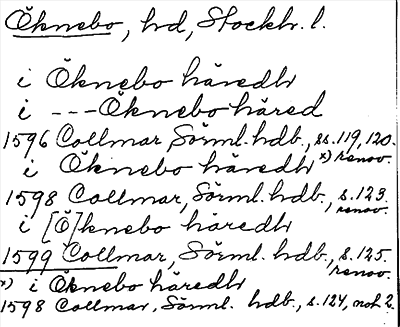 Öknebo, hd, Stockh. l.
i Öknebo häredh
i ---Öknebo häred
1596 Collmar Sörml. hdb., ss. 119, 120.
i Öknebo häredh x) renov.
1598 Collmar, Sörml. hdb., s. 123.
renov.
i [Ö]knebo häredh
1599 Collmar, Sörml. hdb., s. 125.
renov.
x) i Öknebo häredh
1598 Collmar, Sörml. hdb., s. 124, not 2.